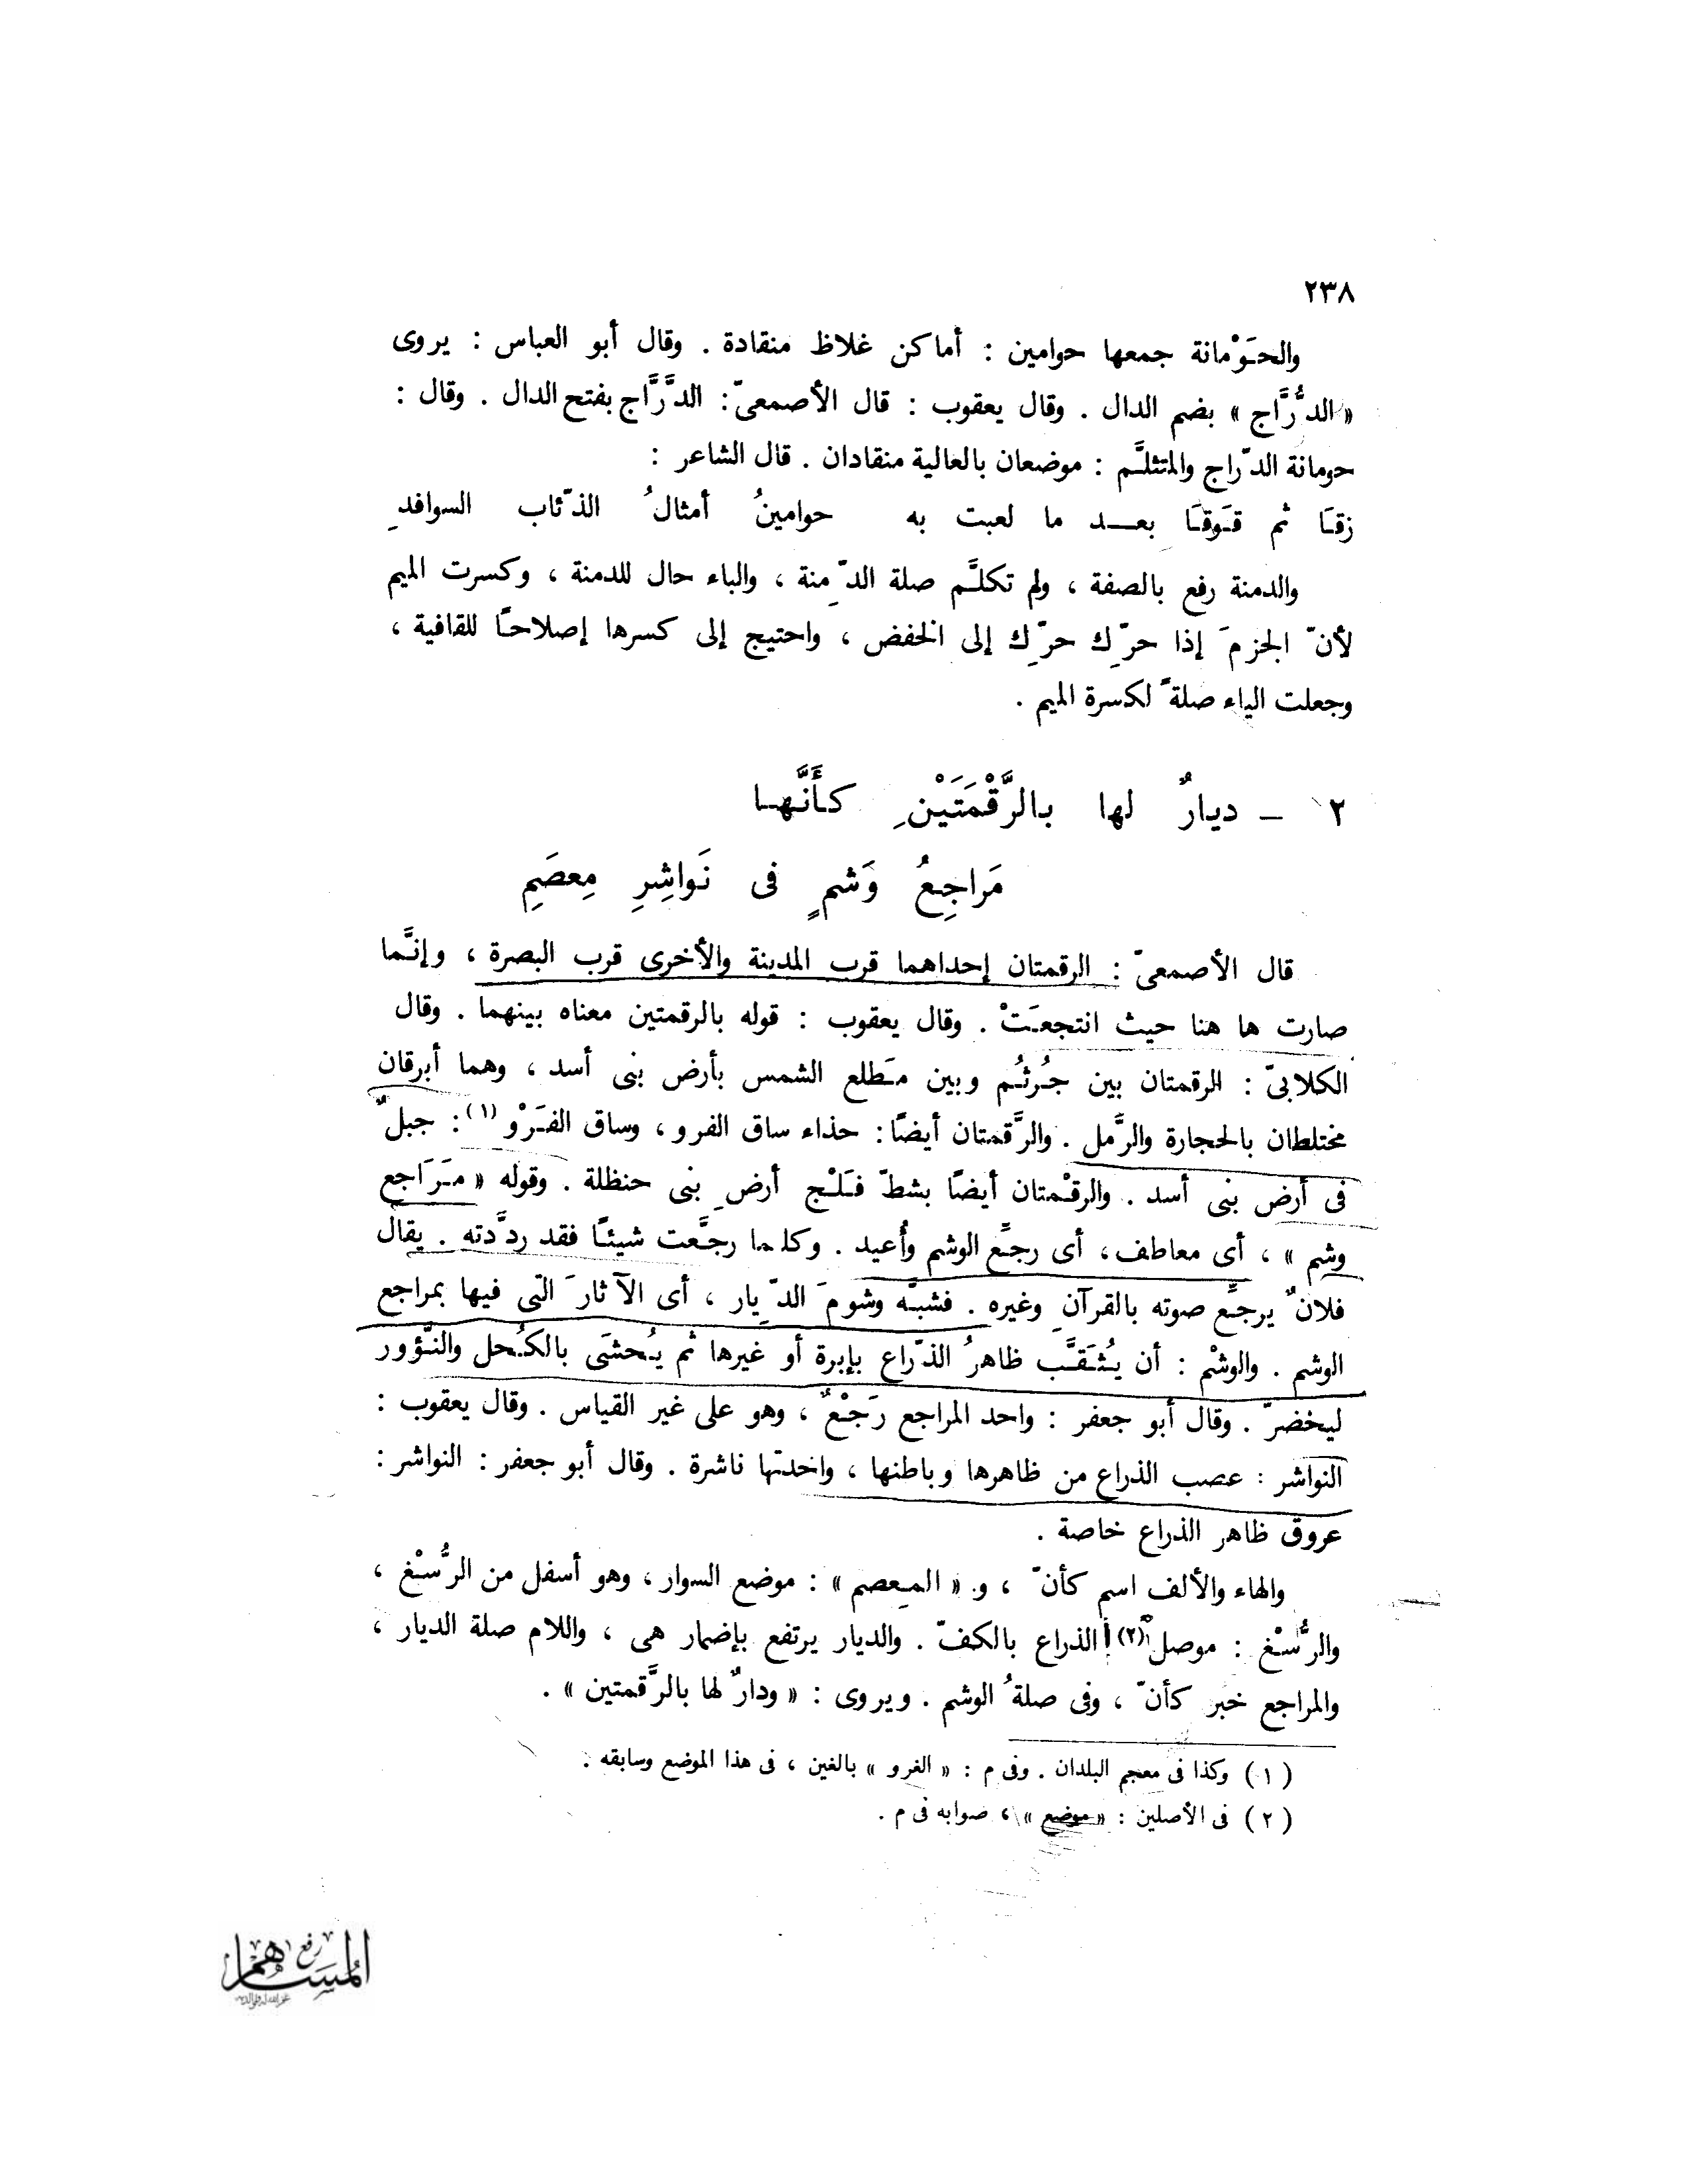 ٢٣٨
والحَوْمانة جمعها حوامين : أماكن غلاظ منقادة . وقال أبو العباس : يروى
« الدُّرَّاج » بضم الدال . وقال يعقوب : قال الأصمعىّ: الدَّرَّاج بفتح الدال . وقال :
حومانة الدّراج والمتثلَّم : موضعان بالعالية منقادان . قال الشاعر :
زقَا ثم قَوقَا بعـد ما لعبت به حوامينُ أمثالُ الذّئاب السوافدِ
والدمنة رفع بالصفة ، ولم تكلَّم صلة الدّمِنة ، والباء حال للدمنة ، وكسرت الميم
لأنّ الجزمَ إذا حرّك حرِّك إلى الخفض ، واحتيج إلى كسرها إصلاحًا للقافية ،
وجعلت الياء صلةً لكسرة الميم .
٢ – ديارٌ لها بالرَّقْمَتَيْنِ كأَنَّها
مَراجِعُ وَشمٍ فى نَواشِرِ مِعصَمِ
قال الأصمعىّ : الرقمتان إحداهما قرب المدينة والأخرى قرب البصرة ، وإنَّما
صارت ها هنا حيث انتجعَتْ . وقال يعقوب : قوله بالرقمتين معناه بينهما . وقال
الكلابىّ : الرقمتان بين جُرثُم وبين مَطلع الشمس بأرض بنى أسد ، وهما أبرقان
مختلطان بالحجارة والرَّمل . والرَّقمتان أيضًا: حذاء ساق الفرو ، وساق الفَرْو(١): جبلٌ
فى أرض بنى أسد . والرقْمتان أيضًا بشطّ فَلْج أرضِ بنى حنظلة . وقوله « مَرَاجع
وشم » ، أى معاطف ، أى رجِّع الوشم وأُعيد . وكلما رجَّعت شيئًا فقد ردَّدته . يقال
فلانٌ يرجِّع صوته بالقرآنِ وغيره . فشبَّه وشومَ الدّيار ، أى الآثارَ التى فيها بمراجع
الوشم . والوشْم : أن يُثَقَّب ظاهرُ الذّراع بإبرة أو غيرها ثم يُحشَى بالكُحل والنَّؤور
ليخضرّ . وقال أبو جعفر : واحد المراجع رَجْعٌ ، وهو على غير القياس . وقال يعقوب :
النواشر : عصب الذراع من ظاهرها وباطنها ، واحدتها ناشرة . وقال أبو جعفر : النواشر :
عروق ظاهر الذراع خاصة .
والهاء والألف اسم كأنّ ، و « المِعصم » : موضع السوار ، وهو أسفل من الرُّسْغ ،
والرُّسْغ : موصل(٢) الذراع بالكفّ . والديار يرتفع بإضمار هى ، واللام صلة الديار ،
والمراجع خبر كأنّ ، وفى صلةُ الوشم . ويروى : « ودارٌ لها بالرَّقمتين » .
( ١ ) وكذا فى معجم البلدان . وفى م : « الغرو » بالغين ، فى هذا الموضع وسابقه .
( ٢ ) فى الأصلين : « موضع » ، صوابه فى م .